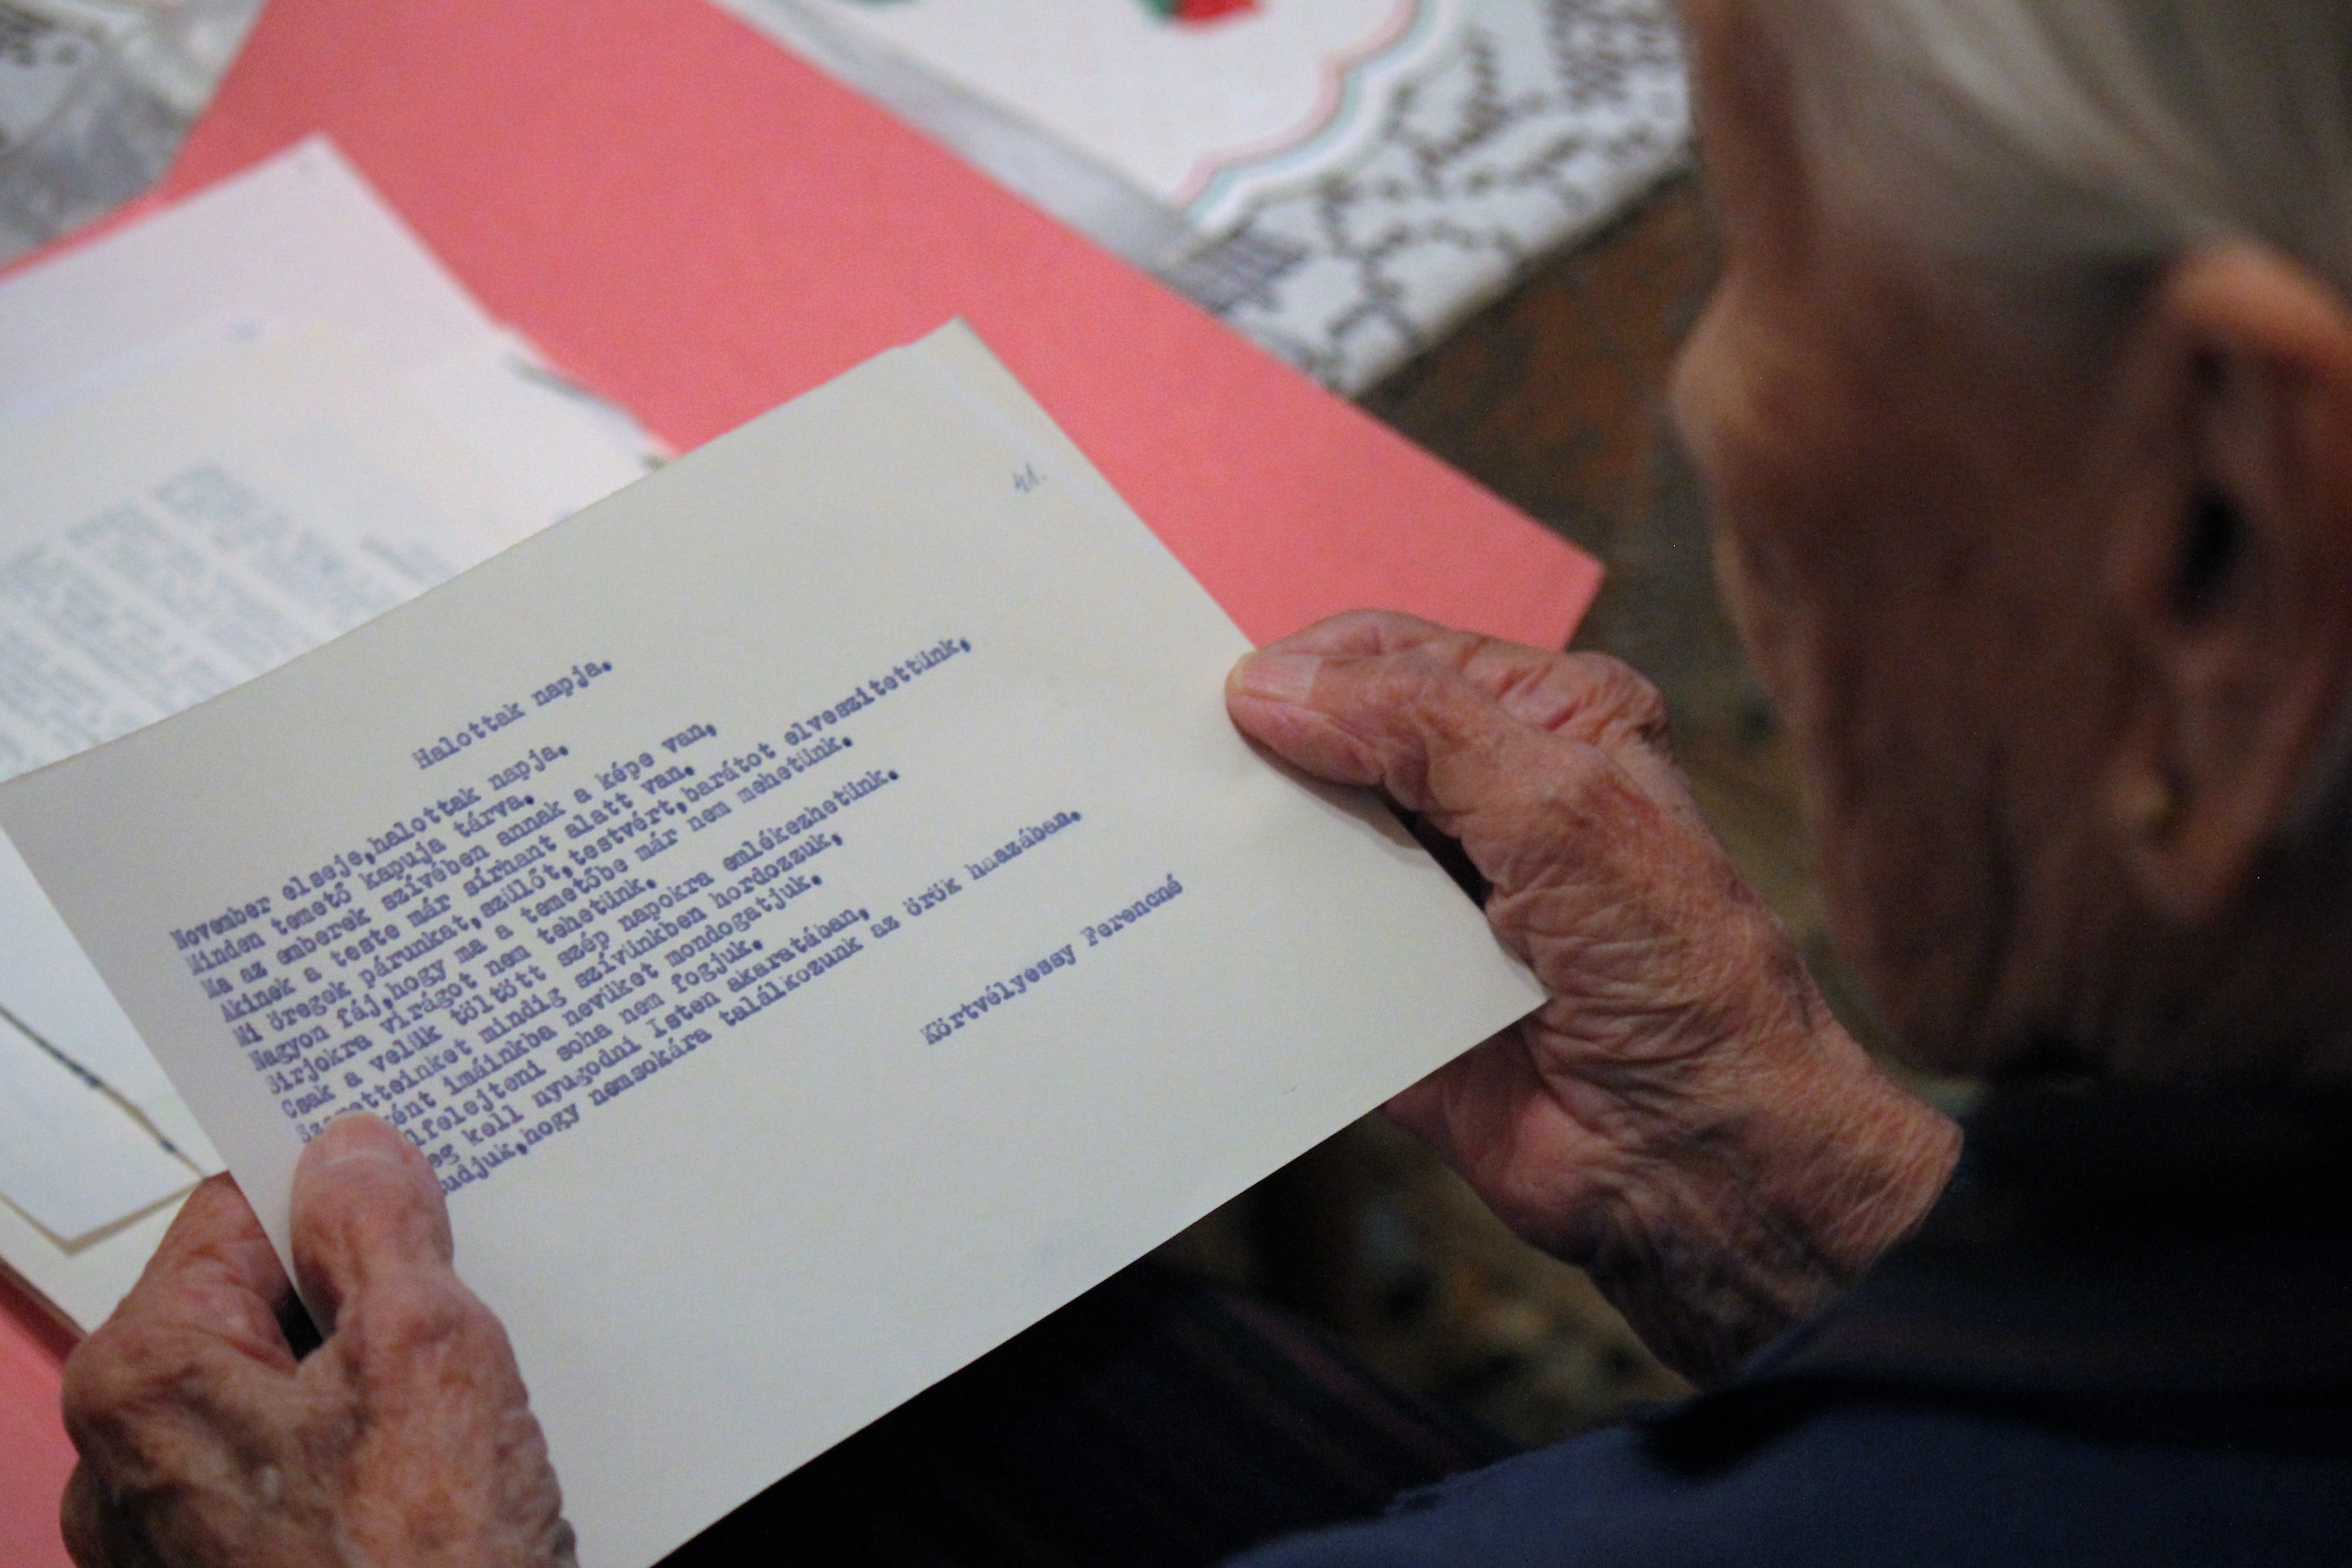 41.
Halottak napja.
November elseje,halottak napja.
Minden temető kapuja tárva.
Ma az emberek szívében annak a képe van,
Akinek a teste már sírhant alatt van.
Mi öregek párunkat,szülőt,testvért,barátot elveszítettünk,
Nagyon fáj,hogy ma a temetőbe már nem mehetünk.
Sirjokra virágot nem tehetünk.
Csak a velük töltött szép napokra emlékezhetünk.
Szeretteinket mindig szívünkben hordozzuk,
ként imáinkba nevüket mondogatjuk.
lfelejteni soha nem fogjuk.
eg kell nyugodni Isten akaratában,
udjuk,hogy nemsokára találkozunk az örök haazában.
Körtvélyessy Ferencné